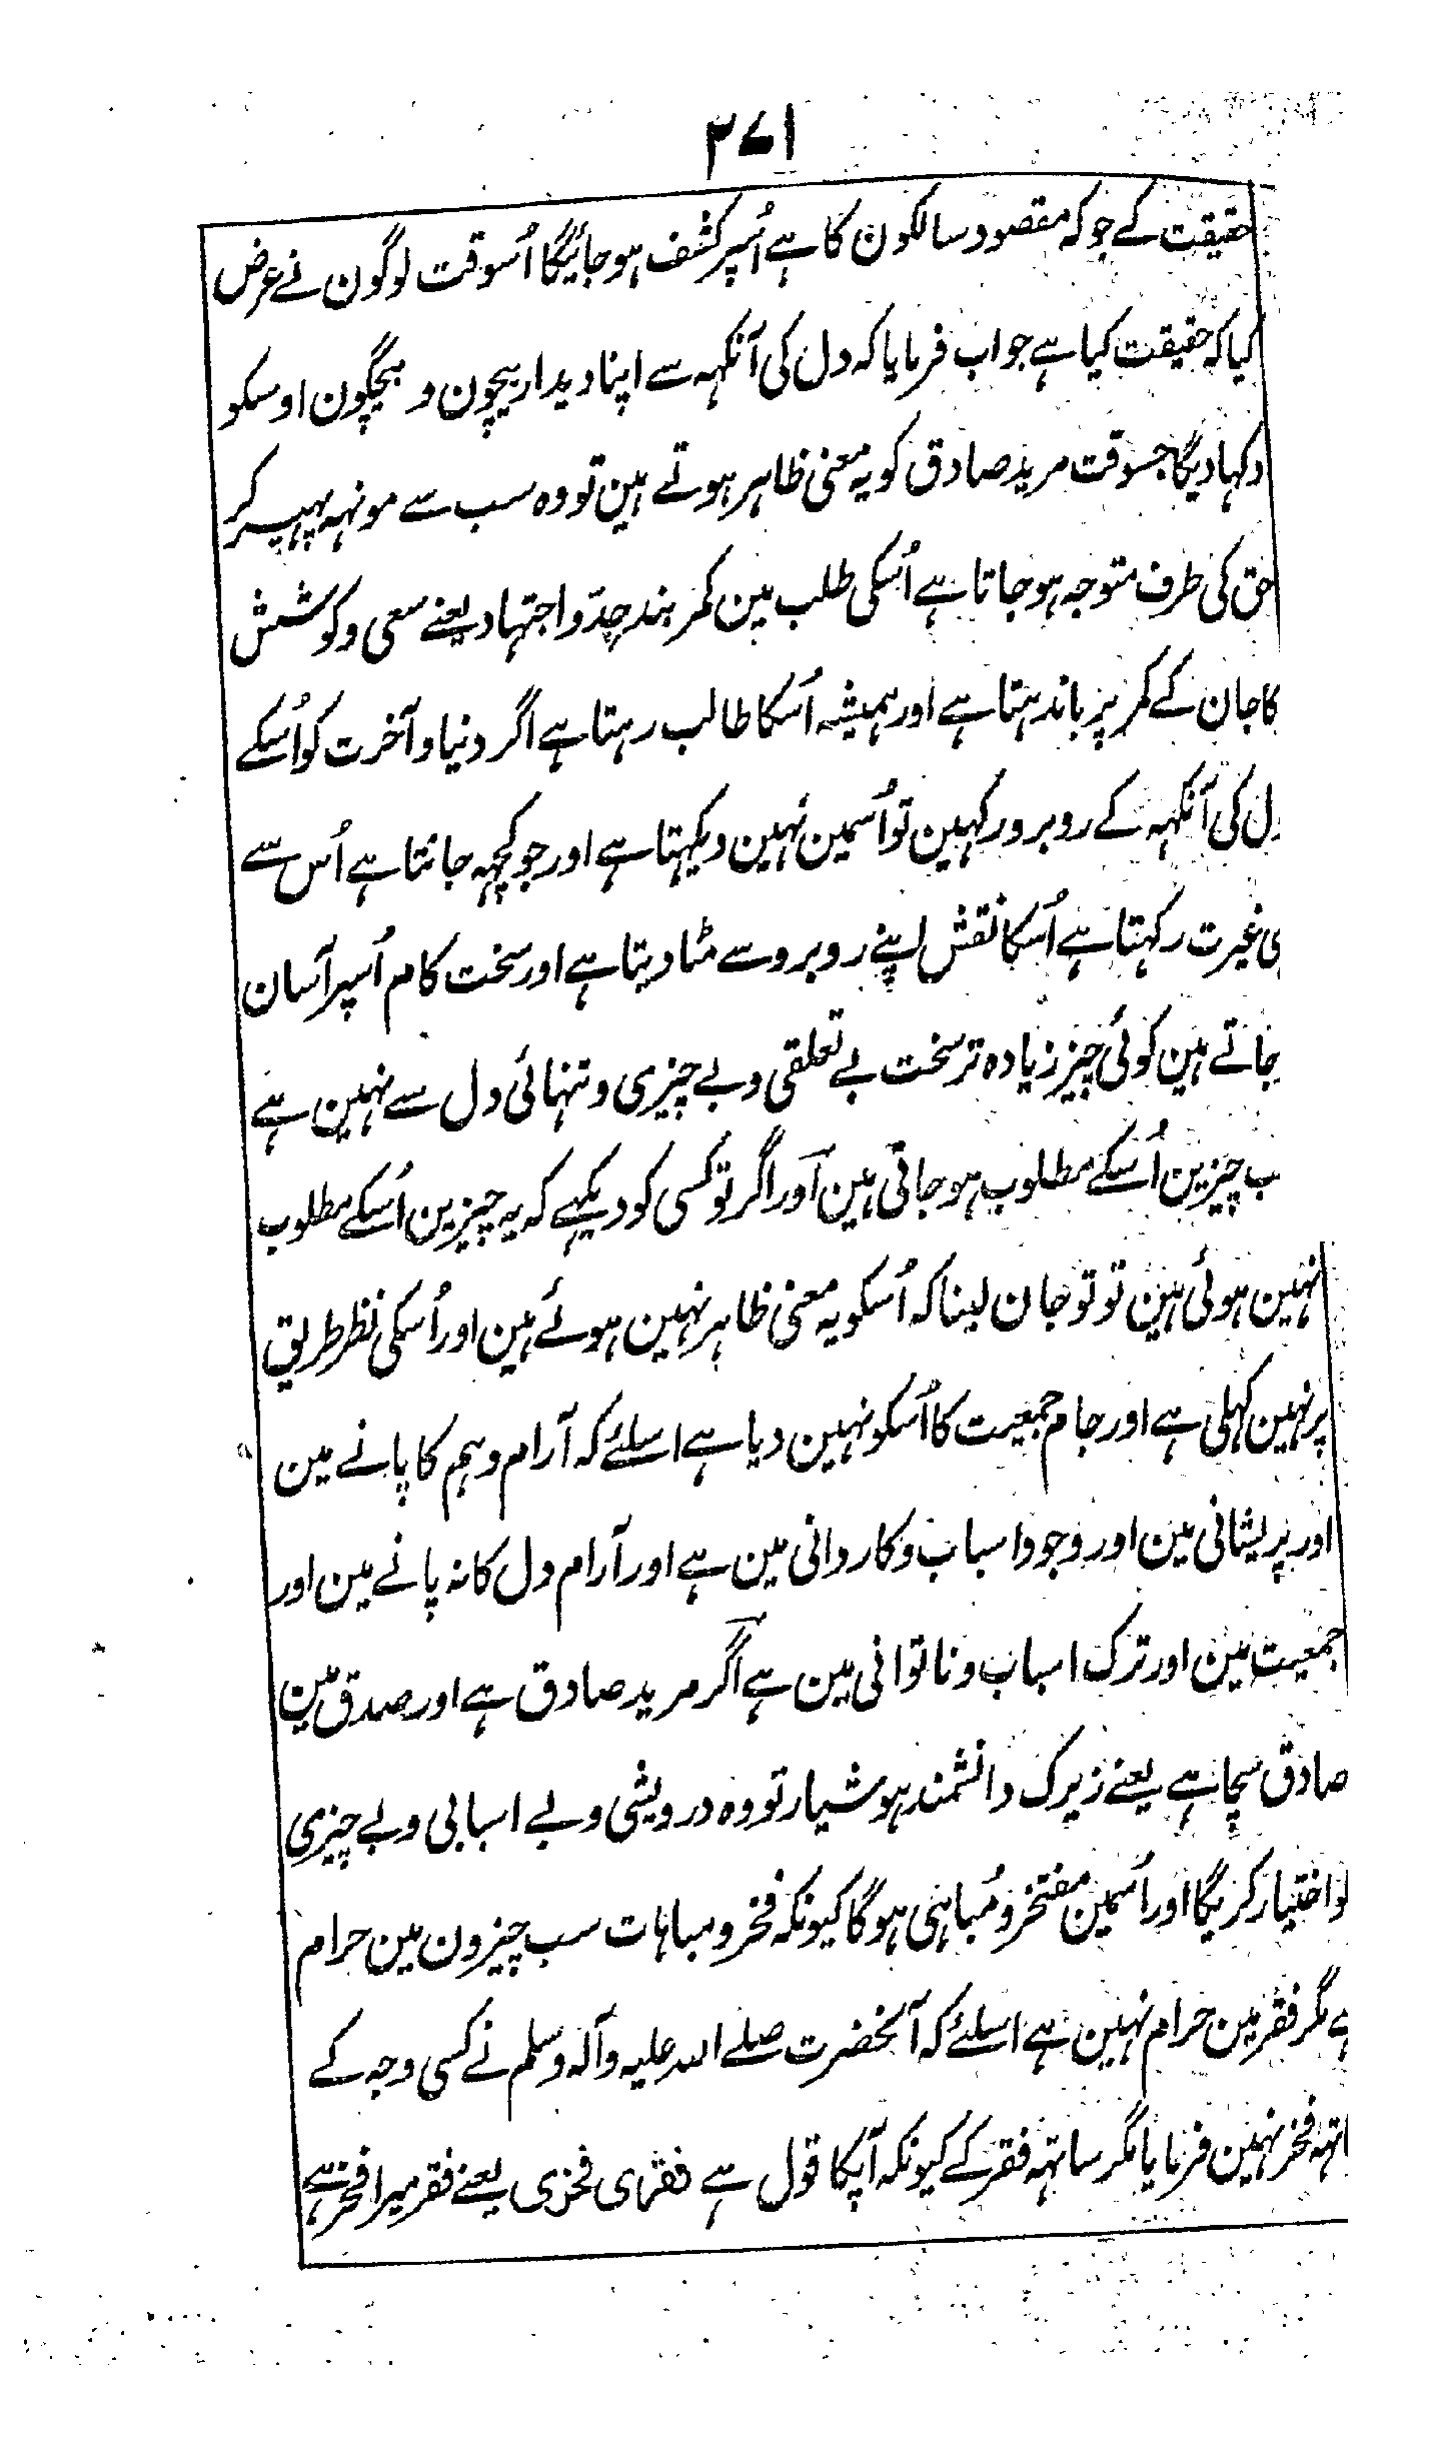 ۳۷۱
حقیقت کے جو کہ مقصود سالکون کا ہے اُسپر کشف ہو جائیگا اُسوقت لوگون نے عرض
کیا کہ حقیقت کیا ہے جواب فرمایا کہ دل کی آنکہہ سے اپنا دیدار بیچون و بیچگون اوسکو
دکہا دیگا جسوقت مرید صادق کو یہ معنی ظاہر ہوتے ہین تو وہ سب سے مونہہ پہیر کر
حق کی طرف متوجہ ہو جاتا ہے اُسکی طلب مین کمر بند جدّ و اجتہاد یعنے سعی و کوشش
کا جان کے کمر پر باندہتا ہے اور ہمیشہ اُسکا طالب رہتا ہے اگر دنیا و آخرت کو اُسکے
دل کی آنکہہ کے روبرو رکہین تو اُسمین نہین دیکہتا ہے اور جو کچہہ جانتا ہے اُس سے
ی غیرت رکہتا ہے اُسکا نقش اپنے روبرو سے مٹا دیتا ہے اور سخت کام اُسپر آسان
جاتے ہین کوئی چیز زیادہ تر سخت بے تعلقی و بے چیزی و تنہائی دل سے نہین ہے
ب چیزین اُسکے مطلوب ہو جاتی ہین اور اگر تو کسی کو دیکہے کہ یہ چیزین اُسکے مطلوب
نہین ہوئی ہین تو تو جان لینا کہ اُسکو یہ معنی ظاہر نہین ہوئے ہین اور اُسکی نظر طریق
پر نہین کہلی ہے اور جام جمعیت کا اُسکو نہین دیا ہے اسلئے کہ آرام وہم کا پانے مین
اور پریشانی مین اور وجود اسباب و کاردانی مین ہے اور آرام دل کا نہ پانے مین اور
جمعیت مین اور ترک اسباب و ناتوانی مین ہے اگر مرید صادق ہے اور صدق مین
صادق سچا ہے یعنے زیرک دانشمند ہوشیار تو وہ درویشی و بے اسبابی و بے چیزی
کو اختیار کریگا اور اُسمین مفتخر و مُباہی ہوگا کیونکہ فخر و مباہات سب چیزون مین حرام
ہے مگر فقر مین حرام نہین ہے اسلئے کہ آنحضرت صلے اللہ علیہ وآلہ وسلم نے کسی وجہ کے
اتہہ فخر نہین فرمایا مگر ساتہہ فقر کے کیونکہ آپکا قول ہے فقری فخری یعنے فقر میرا فخر ہے